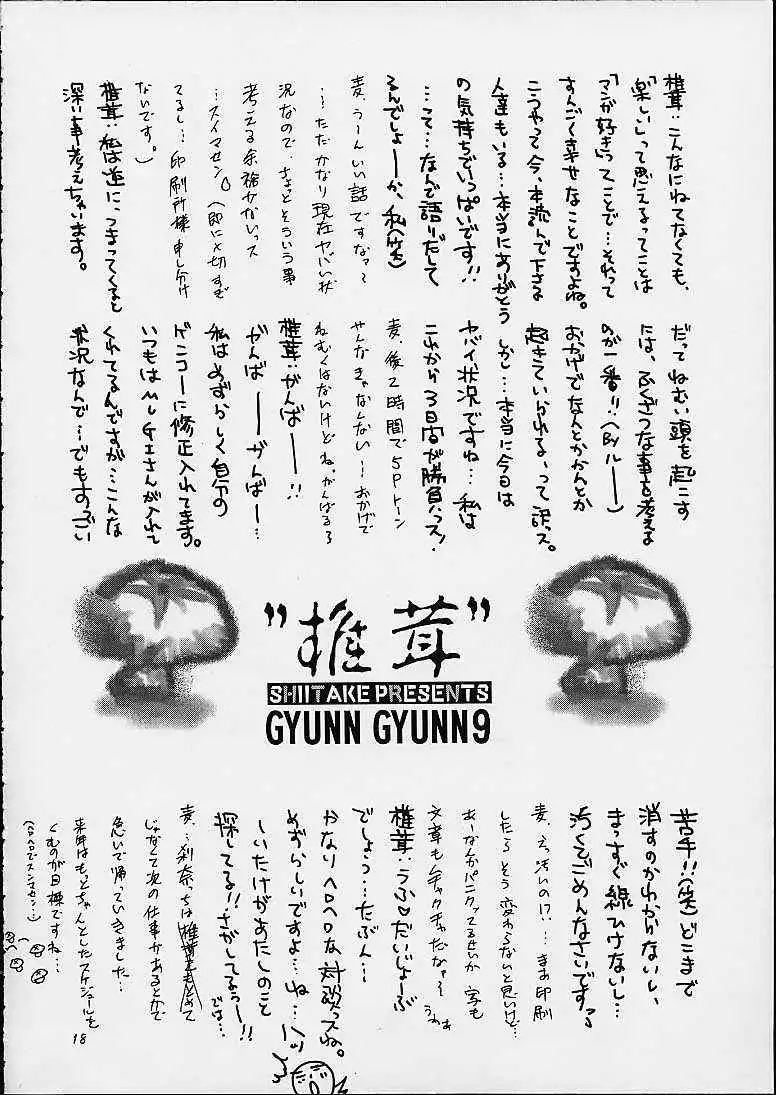 椎茸:こんなにねてなくても、
「楽しい」って思えるってことは
「マンガ好き」ってことで…それって
すんごく幸せなことですよね。
こうやって今、本読んで下さる
人達もいる…本当にありがとう
の気持ちでいっぱいです!!
…って…なんで語りだして
るんでしょーか、私(笑)
麦、うーんいい話ですなァ〜
…ただかなり現在ヤバい状
況なので、ちょっとそういう事
考える余裕がないっス
…スイマセン(即に〆切すぎ
てるし…印刷所様申し分け
ないです。)
椎茸:私は逆に、つまってくると
深い事考えちゃいます。
だってねむい頭を起こす
には、ふくざつな事を考える
のが一番!!(Byルー)
おかげでなんとかかんとか
起きていられる、って訳っス。
しかし…本当に今日は
ヤバイ状況ですね…私は
これから3日間が勝負っス!
麦、後2時間で5Pトーン
やんなきゃなんない…おかげで
ねむくはないけどね。がんばるろ
椎茸:がんばーー!!
がんばーーがんばー…
私はめずらしく自分の
ゲンコーに修正入れてます。
いつもはMUGIさんが入れて
くれてるんですが…こんな
状況なんで…でもすっごい
"椎茸"
SHIITAKE PRESENTS
GYUNN GYUNN 9
苦手!!(笑)どこまで
消すのかわからないし、
まっすぐ線ひけないし…
汚くてごめんなさいですぅ
麦、えっ汚いの!?…まあ印刷
したらそう変わらないと思いけど…
あーなんかパニクッてるせいか字も
文章もムチャクチャだなァ〜
うわぁ
椎茸:うふ♡だいじょーぶ
でしょうっ…たぶん…
かなりヘロヘロな対談っスね。
めずらしいですよ…ね…ハッ!
しいたけがあたしのこと
探してる!!さがしてるぅー!!
では…
麦、…刹奈っちは椎茸をもとめて
じゃなくて次の仕事があるとかで
急いで帰っていきました…
来年はもっとちゃんとしたスケジュールを
くむのが目標ですね…
(ヘロヘロでスンマセン…)
18